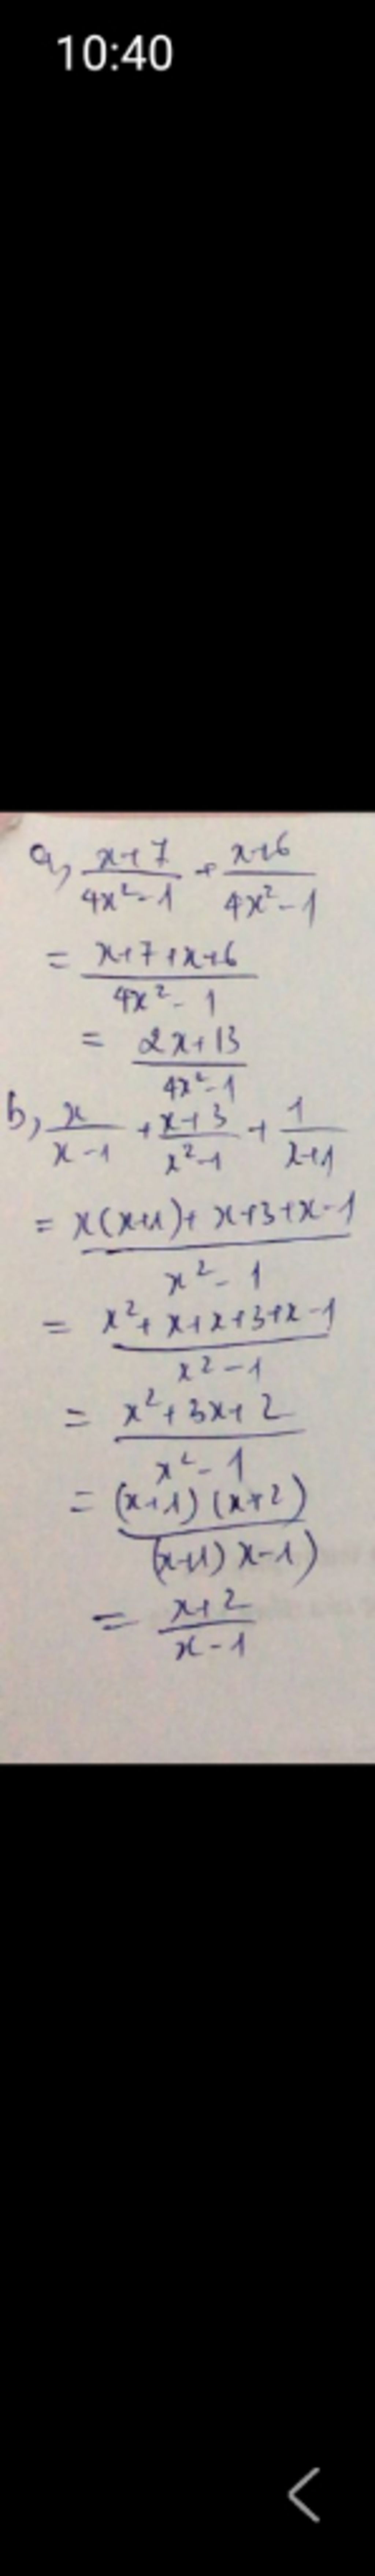 10:40
a, \frac{x+7}{4x^2-1} + \frac{x+6}{4x^2-1}
= \frac{x+7+x+6}{4x^2-1}
= \frac{2x+13}{4x^2-1}
b, \frac{x}{x-1} + \frac{x+3}{x^2-1} + \frac{1}{x+1}
= \frac{x(x+1)+x+3+x-1}{x^2-1}
= \frac{x^2+x+x+3+x-1}{x^2-1}
= \frac{x^2+3x+2}{x^2-1}
= \frac{(x+1)(x+2)}{(x+1)x-1)}
= \frac{x+2}{x-1}